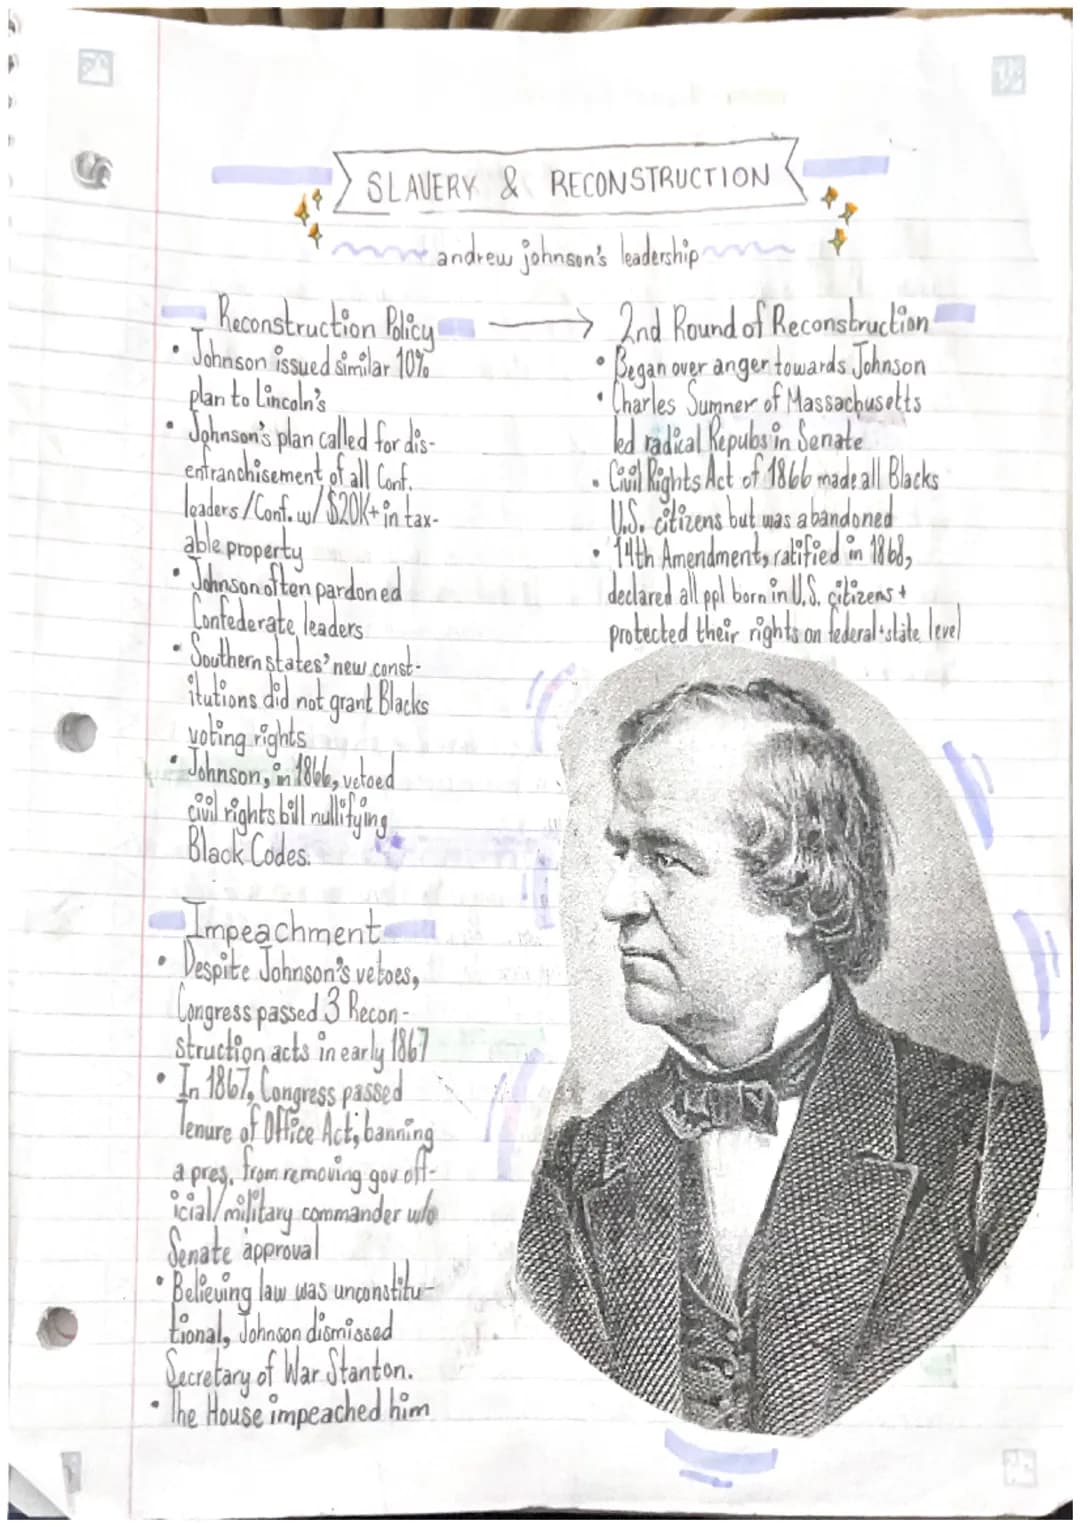 SLAVERY & RECONSTRUCTION
andrew johnson's leadership
Reconstruction Policy
• Johnson issued similar 10%
plan to Lincoln's
• Johnson's plan called for dis-
enfranchisement of all Conf.
leaders/Conf. w/ $20K+ in tax-
able property
• Johnson often pardoned
Confederate leaders
• Southern states' new const-
itutions did not grant Blacks
voting rights
• Johnson, in 1866, vetoed
civil rights bill nullifying
Black Codes.
Impeachment
• Despite Johnson's vetoes,
Congress passed 3 Recon-
struction acts in early 1867
• In 1867, Congress passed
Tenure of Office Act, banning
a pres. from removing gov off-
icial/military commander w/o
Senate approval
• Believing law was unconstitu-
tional, Johnson dismissed
Secretary of War Stanton.
• The House impeached him
2nd Round of Reconstruction
• Began over anger towards Johnson
• Charles Sumner of Massachusetts
led radical Repubs in Senate
• Civil Rights Act of 1866 made all Blacks
U.S. citizens but was abandoned
• 14th Amendment, ratified in 1868,
declared all ppl born in U.S. citizens +
protected their rights on federal+state level